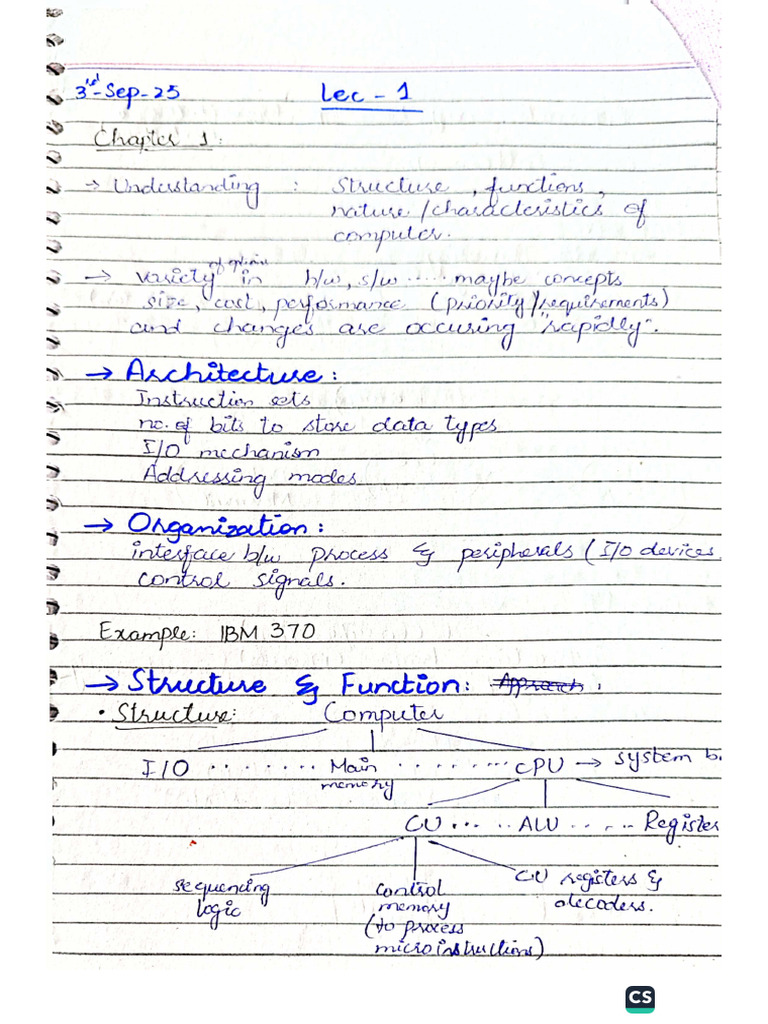 3rd-Sep-25 Lec - 1
Chapter 1:
→ Understanding : structure, functions,
nature/characteristics of
computer.
→ variety of options in h/w, s/w ..... maybe concepts
size, cost, performance (priority/requirements)
and changes are occuring "rapidly".
→ Architecture:
Instruction sets
no. of bits to store data types
I/O mechanism
Addressing modes
→ Organization:
interface b/w process & peripherals (I/O devices
control signals.
Example: IBM 370
→ Structure & Function: Approach :
• Structure: Computer
I/O ....... Main ........ CPU → system b
memory
CU ..... ALU ..... Register
sequencing control CU registers &
logic memory decoders.
(to process
microinstructions)
CS